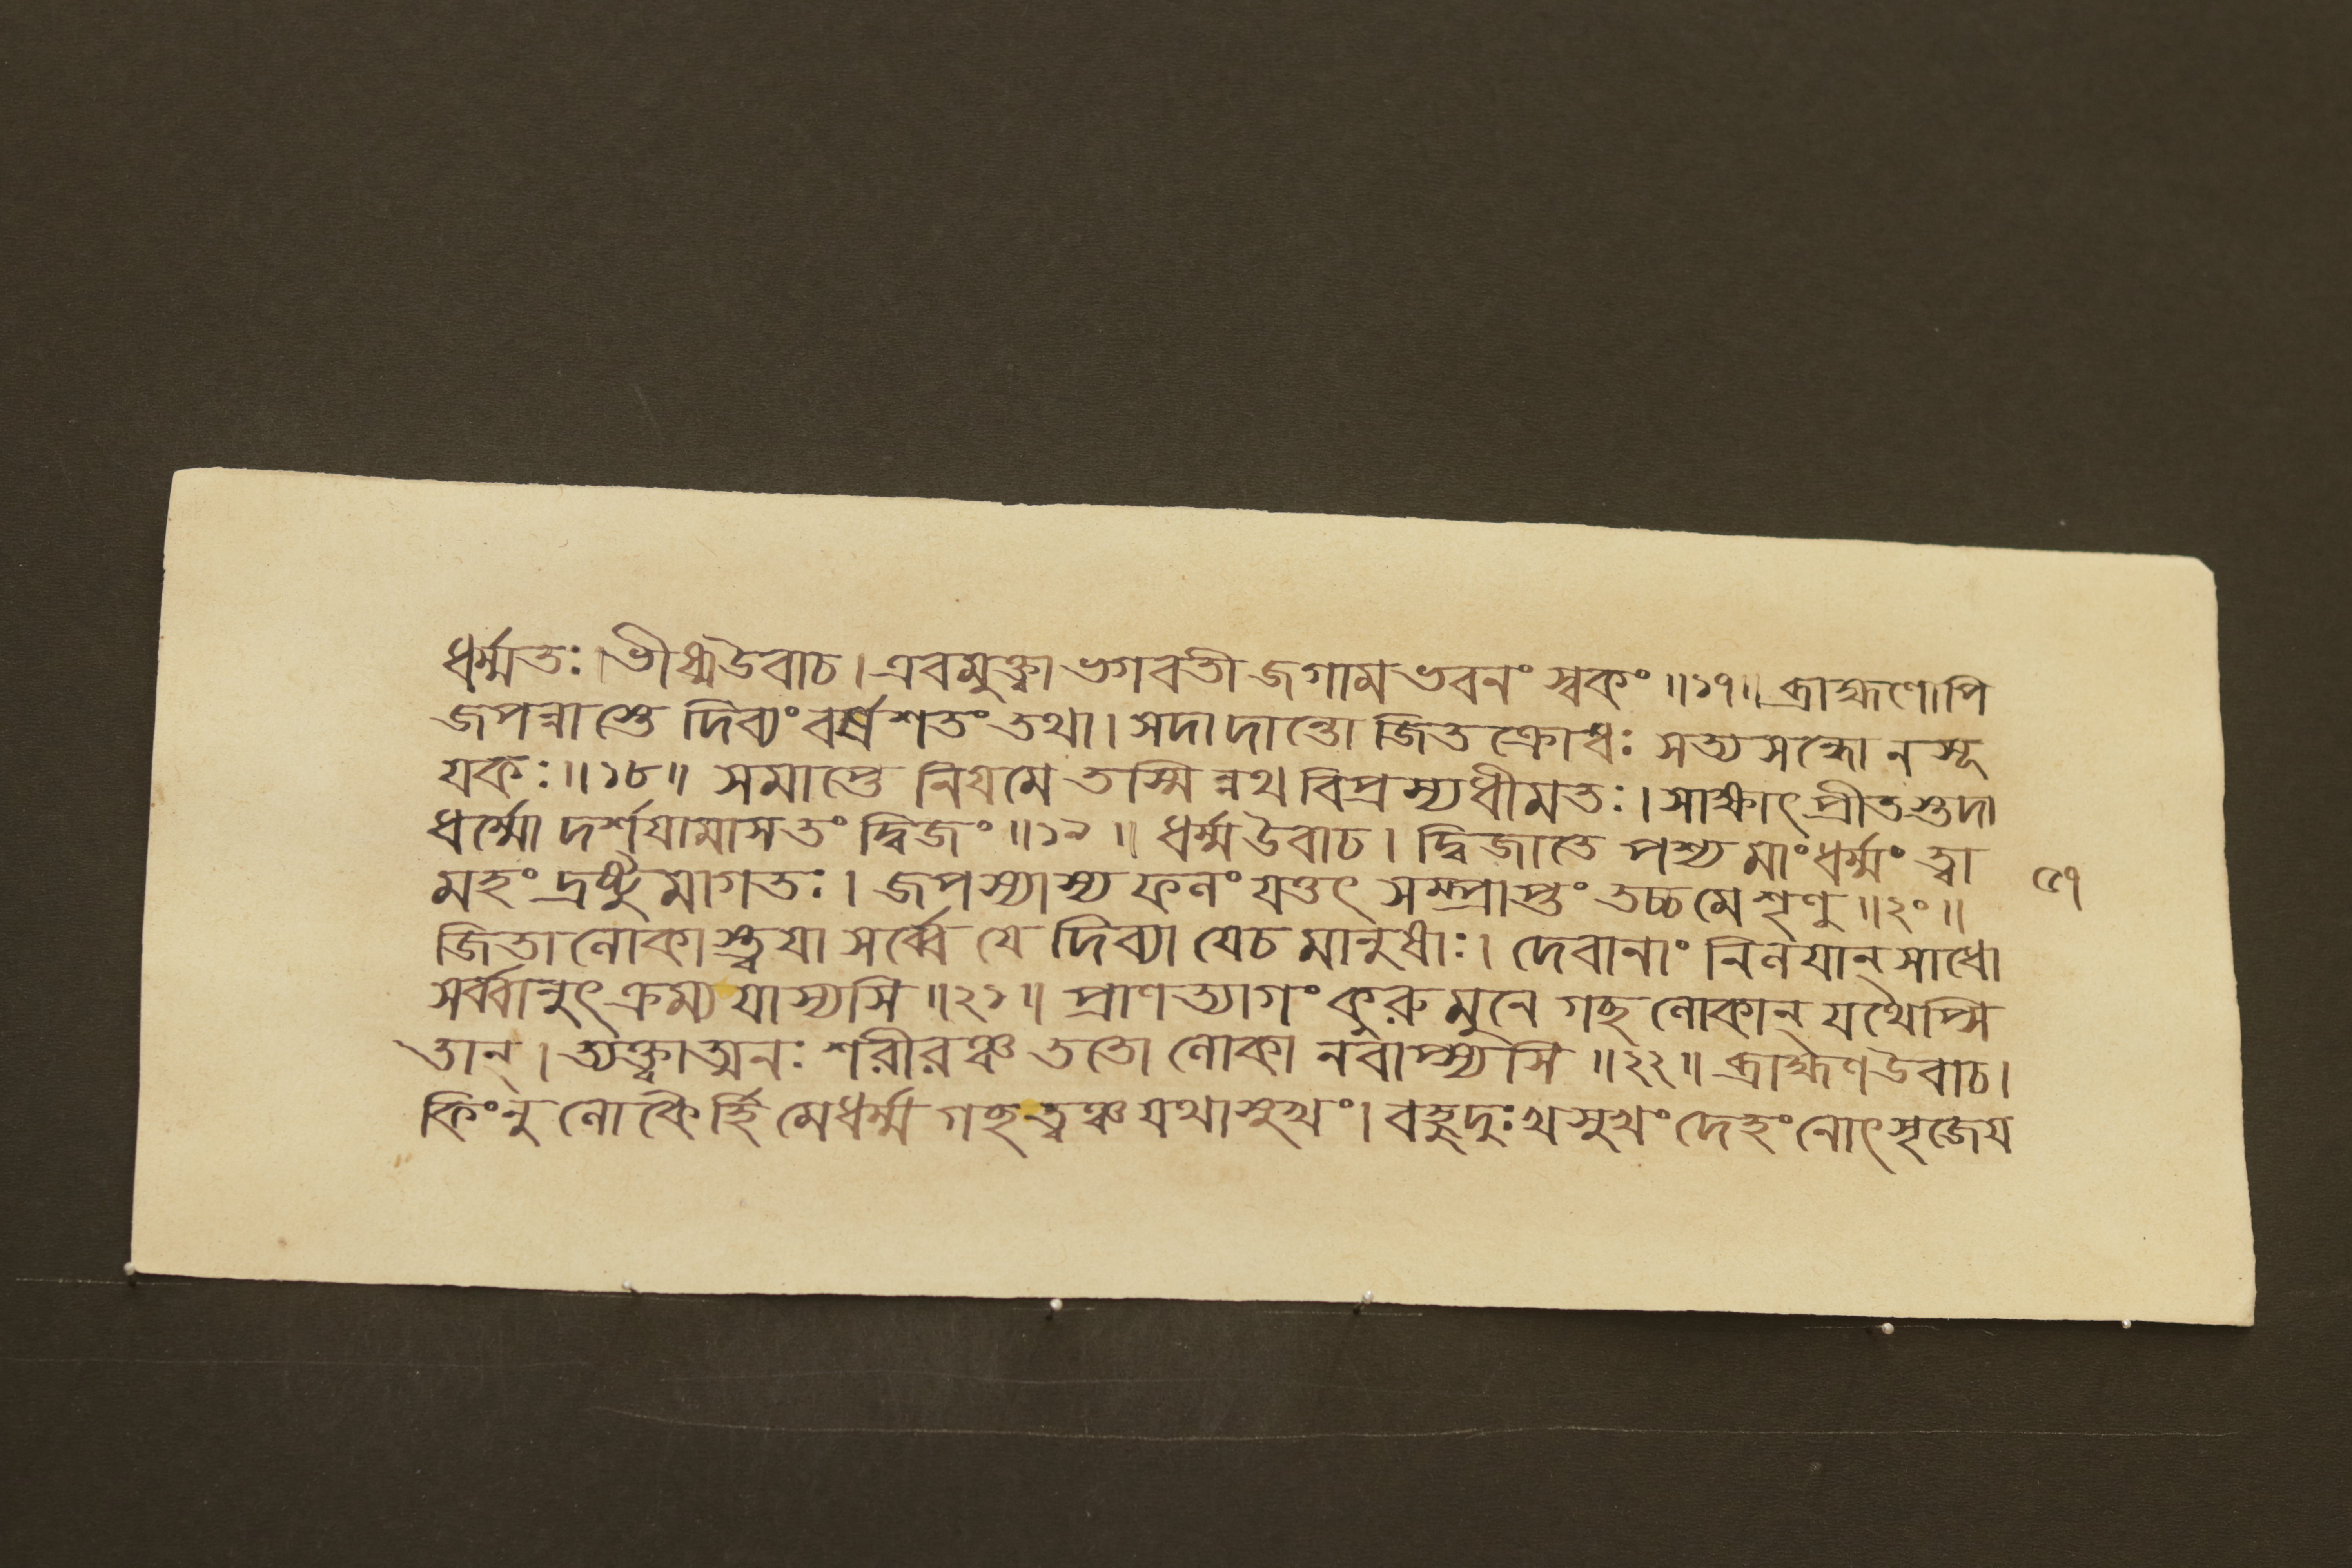 ধর্ম্মতঃ । ভীষ্মউবাচ । এবমুক্ত্বা ভগবতী জগাম ভবনং স্বকং ॥১৭॥ ব্রাহ্মণোপি
জপন্নাস্তে দিব্যং বর্ষশতং তথা । সদা দান্তো জিতক্রোধঃ সত্যসন্ধো নসূ
য়কঃ ॥১৮॥ সমাপ্তে নিয়মে তস্মিন্নথ বিপ্রস্য ধীমতঃ । সাক্ষাৎ প্রীতস্তদা
ধর্ম্মো দর্শয়ামাস তং দ্বিজং ॥১৯॥ ধর্ম্ম উবাচ । দ্বিজাতে পশ্য মাং ধর্ম্মং ত্বা
মহং দ্রষ্টুমাগতঃ । জপস্যাস্য ফলং যত্তৎ সম্প্রাপ্তং তচ্চ মে শৃণু ॥২০॥
জিতা লোকাস্ত্বয়া সর্ব্বে যে দিব্যা যেচ মানুষাঃ । দেবানাং নিলয়ান্ সাধো
সর্ব্বানুৎক্রম্য যাস্যসি ॥২১॥ প্রাণত্যাগং কুরু মুনে গচ্ছ লোকান্ যথেপ্সি
তান্ । ত্যক্ত্বাত্মনঃ শরীরঞ্চ ততো লোকানবাপ্স্যসি ॥২২॥ ব্রাহ্মণ উবাচ ।
কিংনু লোকৈর্হি মে ধর্ম্ম গচ্ছ ত্বঞ্চ যথাসুখং । বহুদুঃখসুখং দেহং নোৎসৃজেয়
৫৭